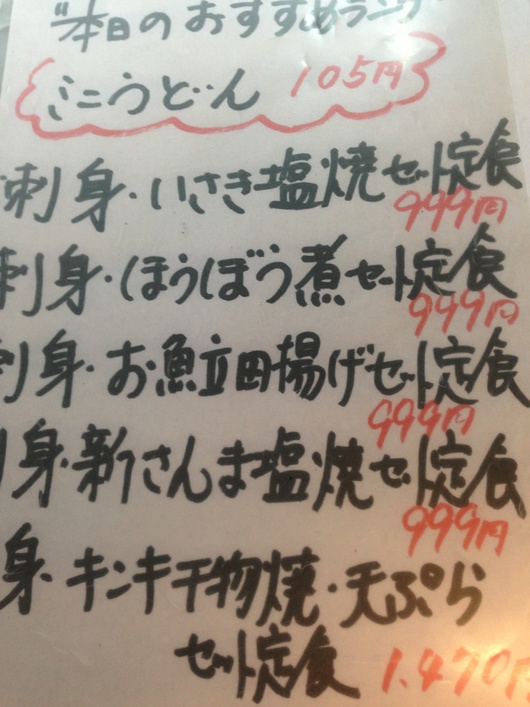 "本日のおすすめランチ
ミニうどん 105円
刺身・いさき塩焼セット定食
999円
刺身・ほうぼう煮セット定食
999円
刺身・お魚立田揚げセット定食
999円
身・新さんま塩焼セット定食
999円
身・キンキ干物焼・天ぷら
セット定食 1.470円